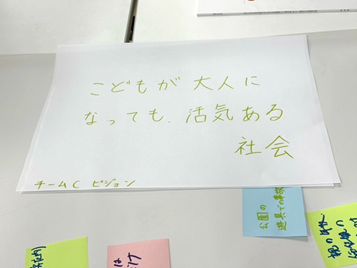 こどもが 大人に
なっても、活気ある
社会
チームC ビジョン
公園の